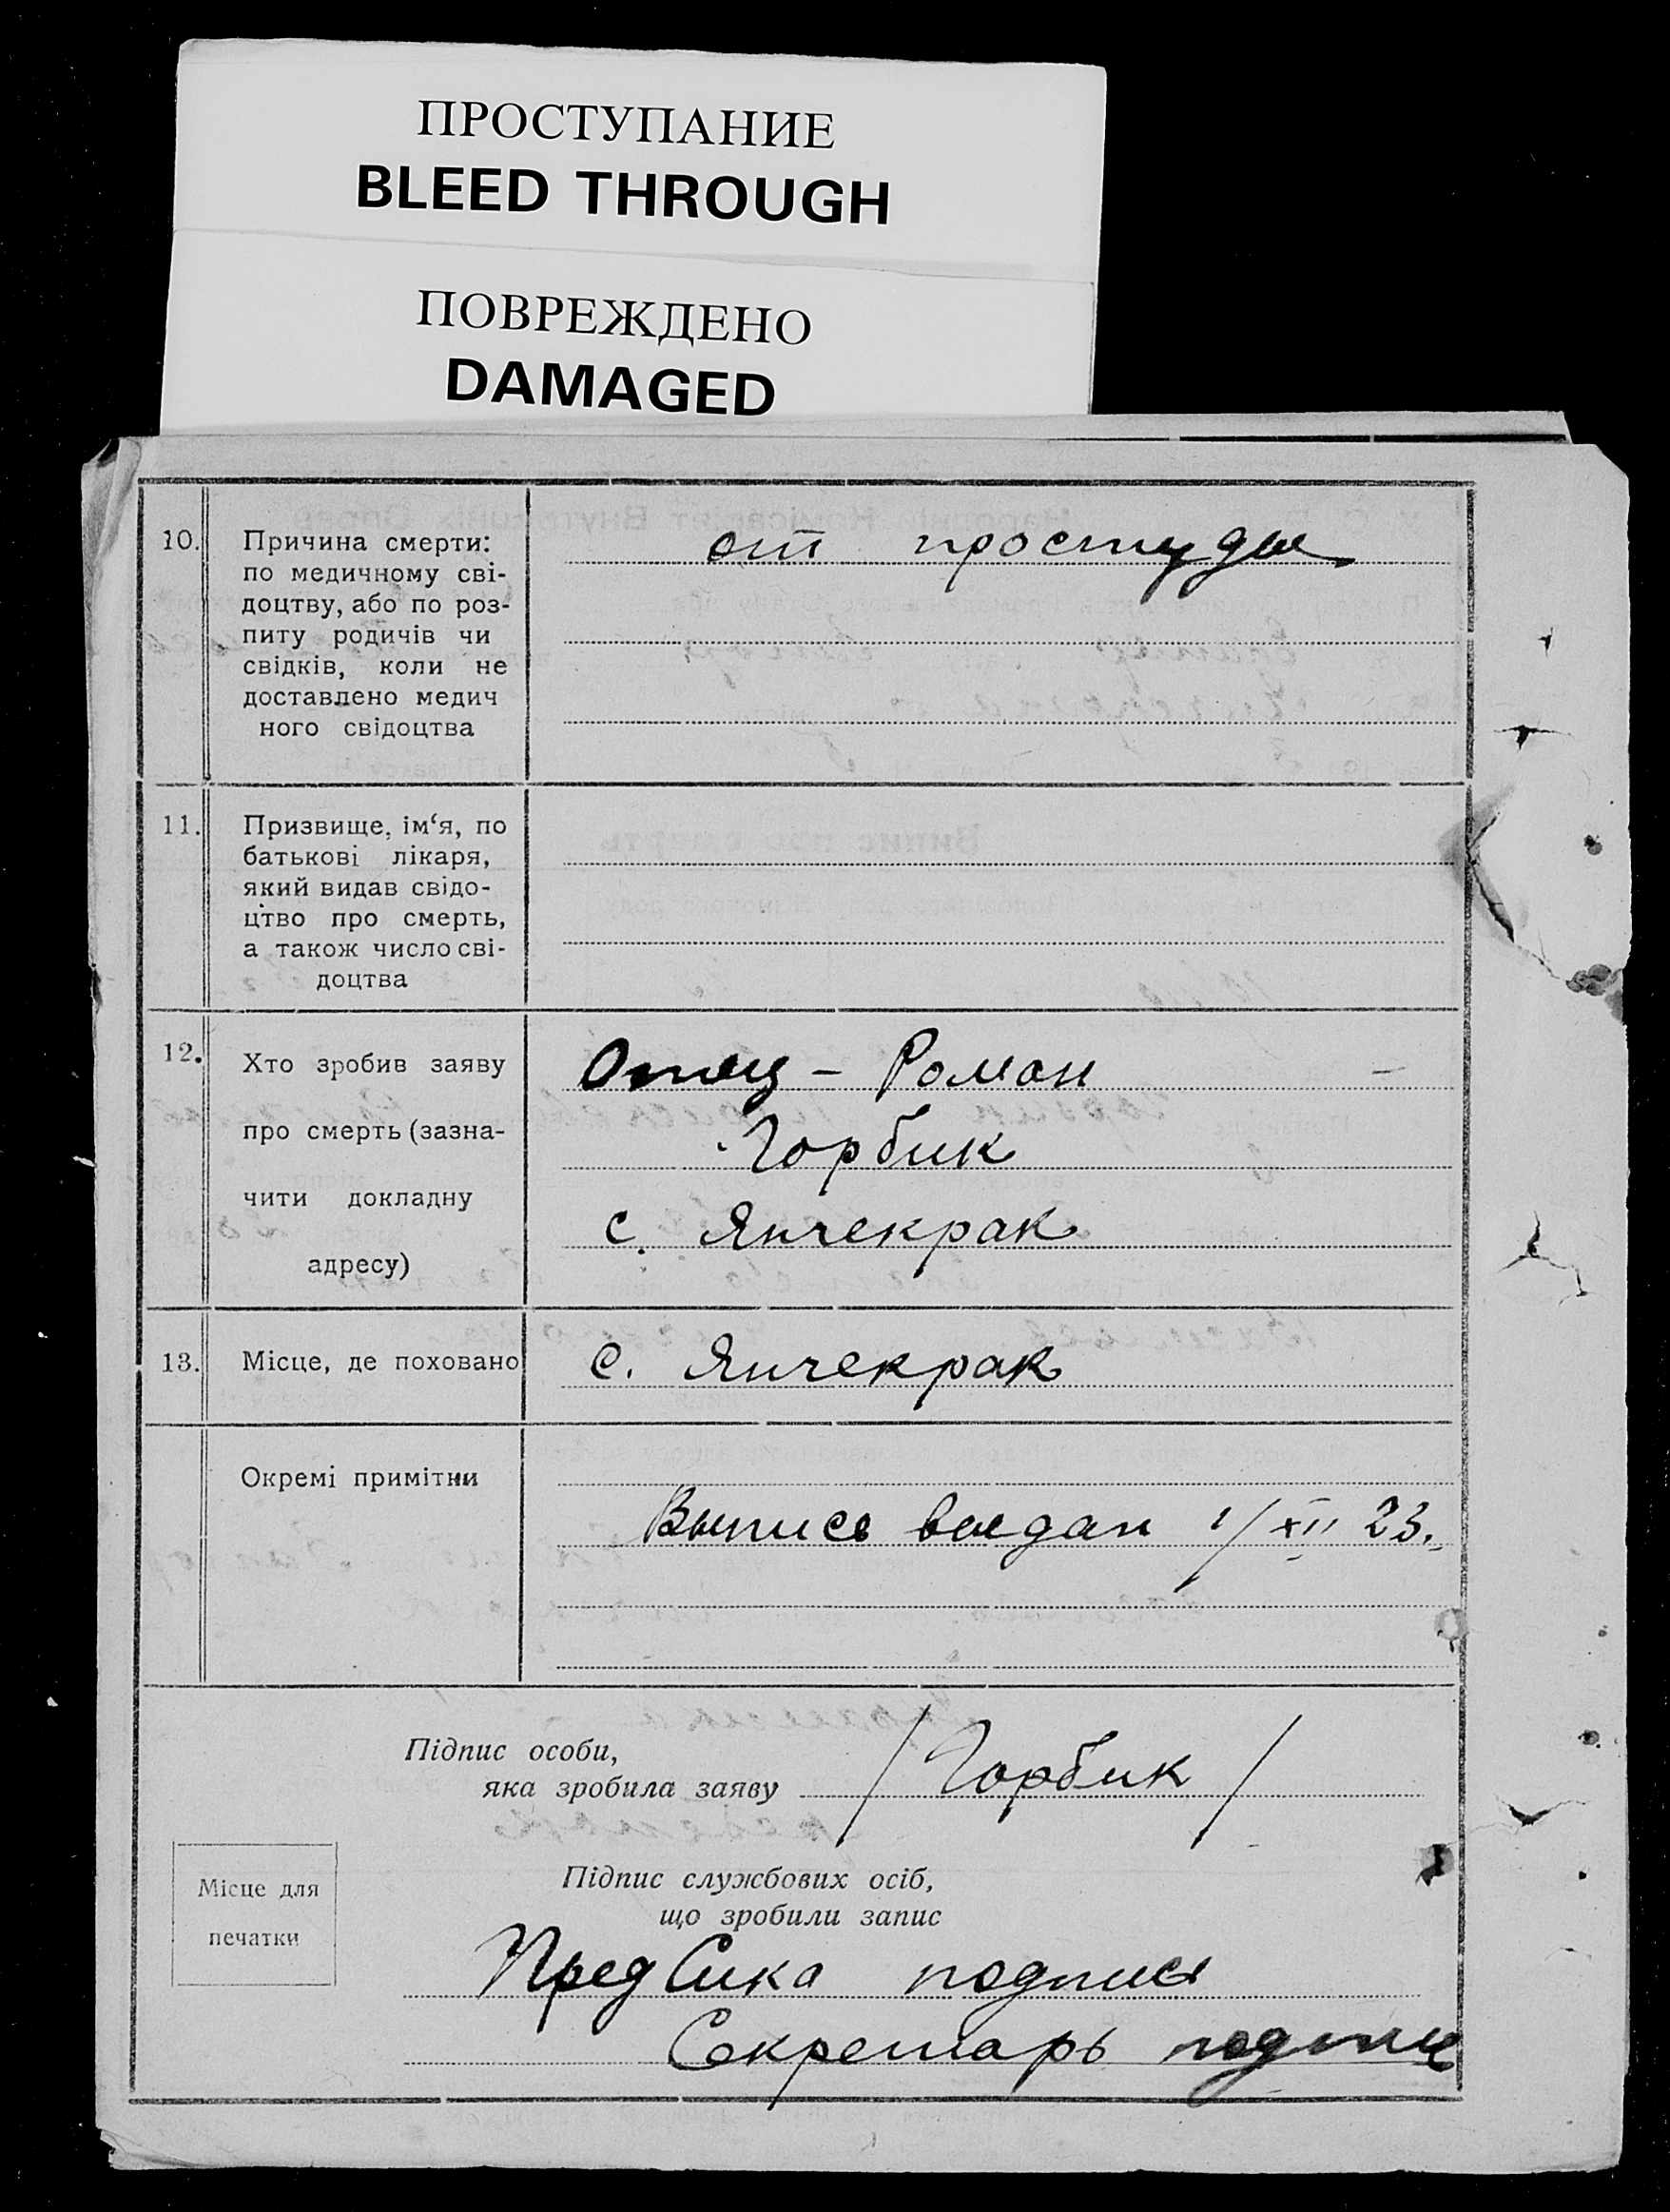 ПРОСТУПАНИЕ
BLEED THROUGH
ПОВРЕЖДЕНО
DAMAGED
10. Причина смерти:
по медичному сві-
доцтву, або по роз-
питу родичів чи
свідків, коли не
доставлено медич
ного свідоцтва
от простуды
11. Призвище, ім‘я, по
батькові лікаря,
який видав свідо-
цтво про смерть,
а також число сві-
доцтва
12. Хто зробив заяву
про смерть (зазна-
чити докладну
адресу)
Отец – Роман –
Горбик
с. Янчекрак
13. Місце, де поховано
с. Янчекрак
Окремі примітки
Выпись выдан 1/XII 23.
Підпис особи,
яка зробила заяву /Горбик/
Місце для
печатки
Підпис службових осіб,
що зробили запис
Пред Сика подпись
Секретарь